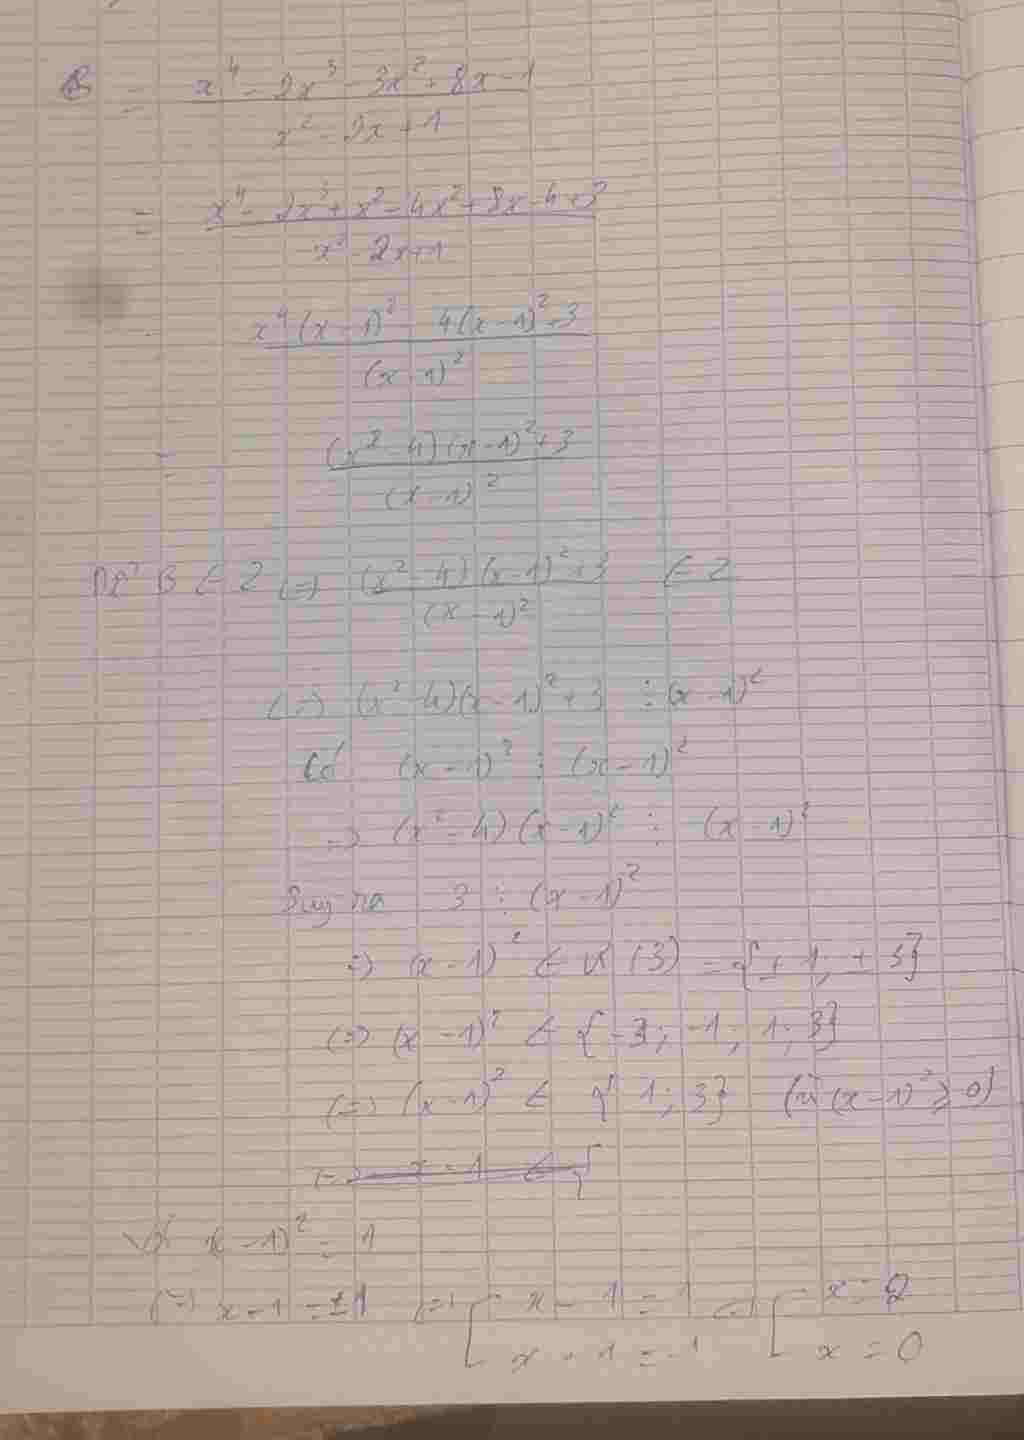 B = \frac{x^4 - 2x^3 - 3x^2 + 8x - 1}{x^2 - 2x + 1}
= \frac{x^4 - 2x^3 + x^2 - 4x^2 + 8x - 4 + 3}{x^2 - 2x + 1}
\frac{x^4(x - 1)^2 - 4(x - 1)^2 + 3}{(x - 1)^2}
= \frac{(x^2 - 4)(x - 1)^2 + 3}{(x - 1)^2}
Để B ∈ Z (=) \frac{(x^2 - 4)(x - 1)^2 + 3}{(x - 1)^2} ∈ Z
(=) (x^2 - 4)(x - 1)^2 + 3 ⋮ (x - 1)^2
Có (x - 1)^2 ⋮ (x - 1)^2
=) (x^2 - 4)(x - 1)^2 ⋮ (x - 1)^2
Suy ra 3 ⋮ (x - 1)^2
=) (x - 1)^2 ∈ Ư(3) = {± 1; ± 3}
(=) (x - 1)^2 ∈ {-3; -1; 1; 3}
(=) (x - 1)^2 ∈ {1; 3} (vì (x - 1)^2 ≥ 0)
(=) x - 1 ∈ {
Với (x - 1)^2 = 1
(=) x - 1 = ±1 (=) [ x - 1 = 1 (=) [ x = 2
x - 1 = -1 x = 0